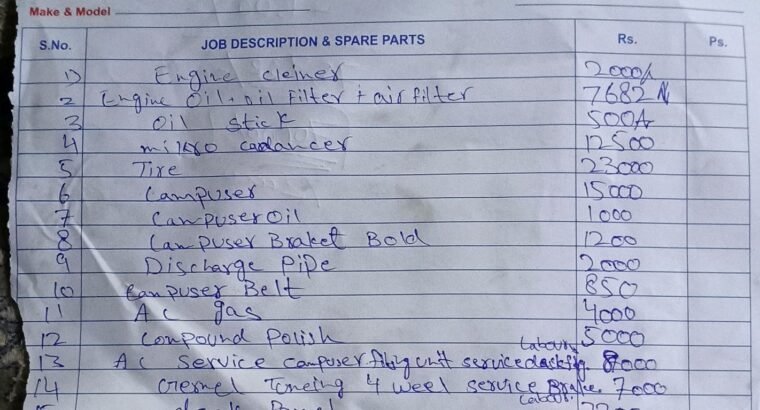 Make & Model
S.No. JOB DESCRIPTION & SPARE PARTS Rs. Ps.
1) Engine cleiner 2000/
2 Engine Oil + oil Filter + air filter 7682
3 Oil stick 500
4 mikro cadancer 12500
5 Tire 23000
6 Campuser 15000
7 Campuser Oil 1000
8 Campuser Braket Bold 1200
9 Discharge Pipe 2000
10 Campuser Belt 850
11 AC gas 4000
12 Compound Polish 5000
Labour
13 AC Service campuser fiting unit service 8000
14 Gernel Tuneing 4 weel service Brake 7000
Labour